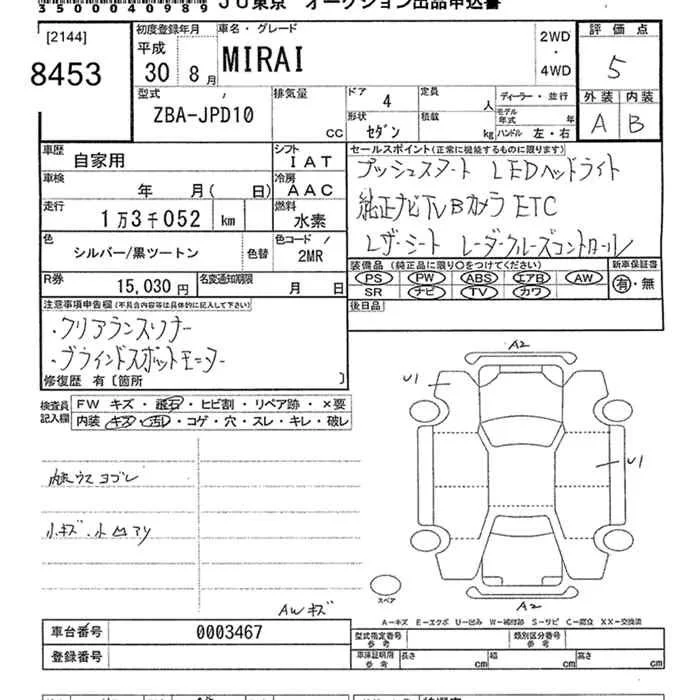 3500040989 JU東京 オークション出品申込書
[2144]
8453
初度登録年月
平成
30年 8月
車名・グレード
MIRAI
2WD
・
4WD
評価点
5
外装 内装
A B
型式
ZBA-JPD10
排気量
cc
ドア
4
形状
セダン
定員
人
積載
kg
ディーラー・並行
モデル年式 年
ハンドル 左・右
車歴
自家用
シフト
IAT
車検
年 月( 日)
冷房
AAC
走行
1万3千052 km
燃料
水素
色
シルバー/黒ツートン
色替
色コード
2MR
R券
15,030円
名変通知期限
月 日
セールスポイント(正常に機能するものに限ります)
プッシュスタート LEDヘッドライト
純正ナビTVBカメラ ETC
レザーシート レーダークルーズコントロール
装備品(純正品に限り○をつけてください)
PS PW ABS エアB AW
SR ナビ TV カワ
新車保証書
有・無
後日品
注意事項申告欄(不具合内容等は具体的に記入して下さい)
・クリアランスソナー
・ブラインドスポットモニター
修復歴 有〔箇所 〕
検査員
記入欄
FW キズ・飛石・ヒビ割・リペア跡・×要
内装 キズ・汚レ・コゲ・穴・スレ・キレ・破レ
内装ウスヨゴレ
小キズ・小凹アリ
AWキズ
A2
U1
U1
A2
スペア
A－キズ E－エクボ U－凹み W－補修跡 S－サビ C－腐食 XX－交換済
車台番号
0003467
登録番号
型式指定番号
参考
類別区分番号
参考
車庫証明用
参考
長さ cm 幅 cm 高さ cm